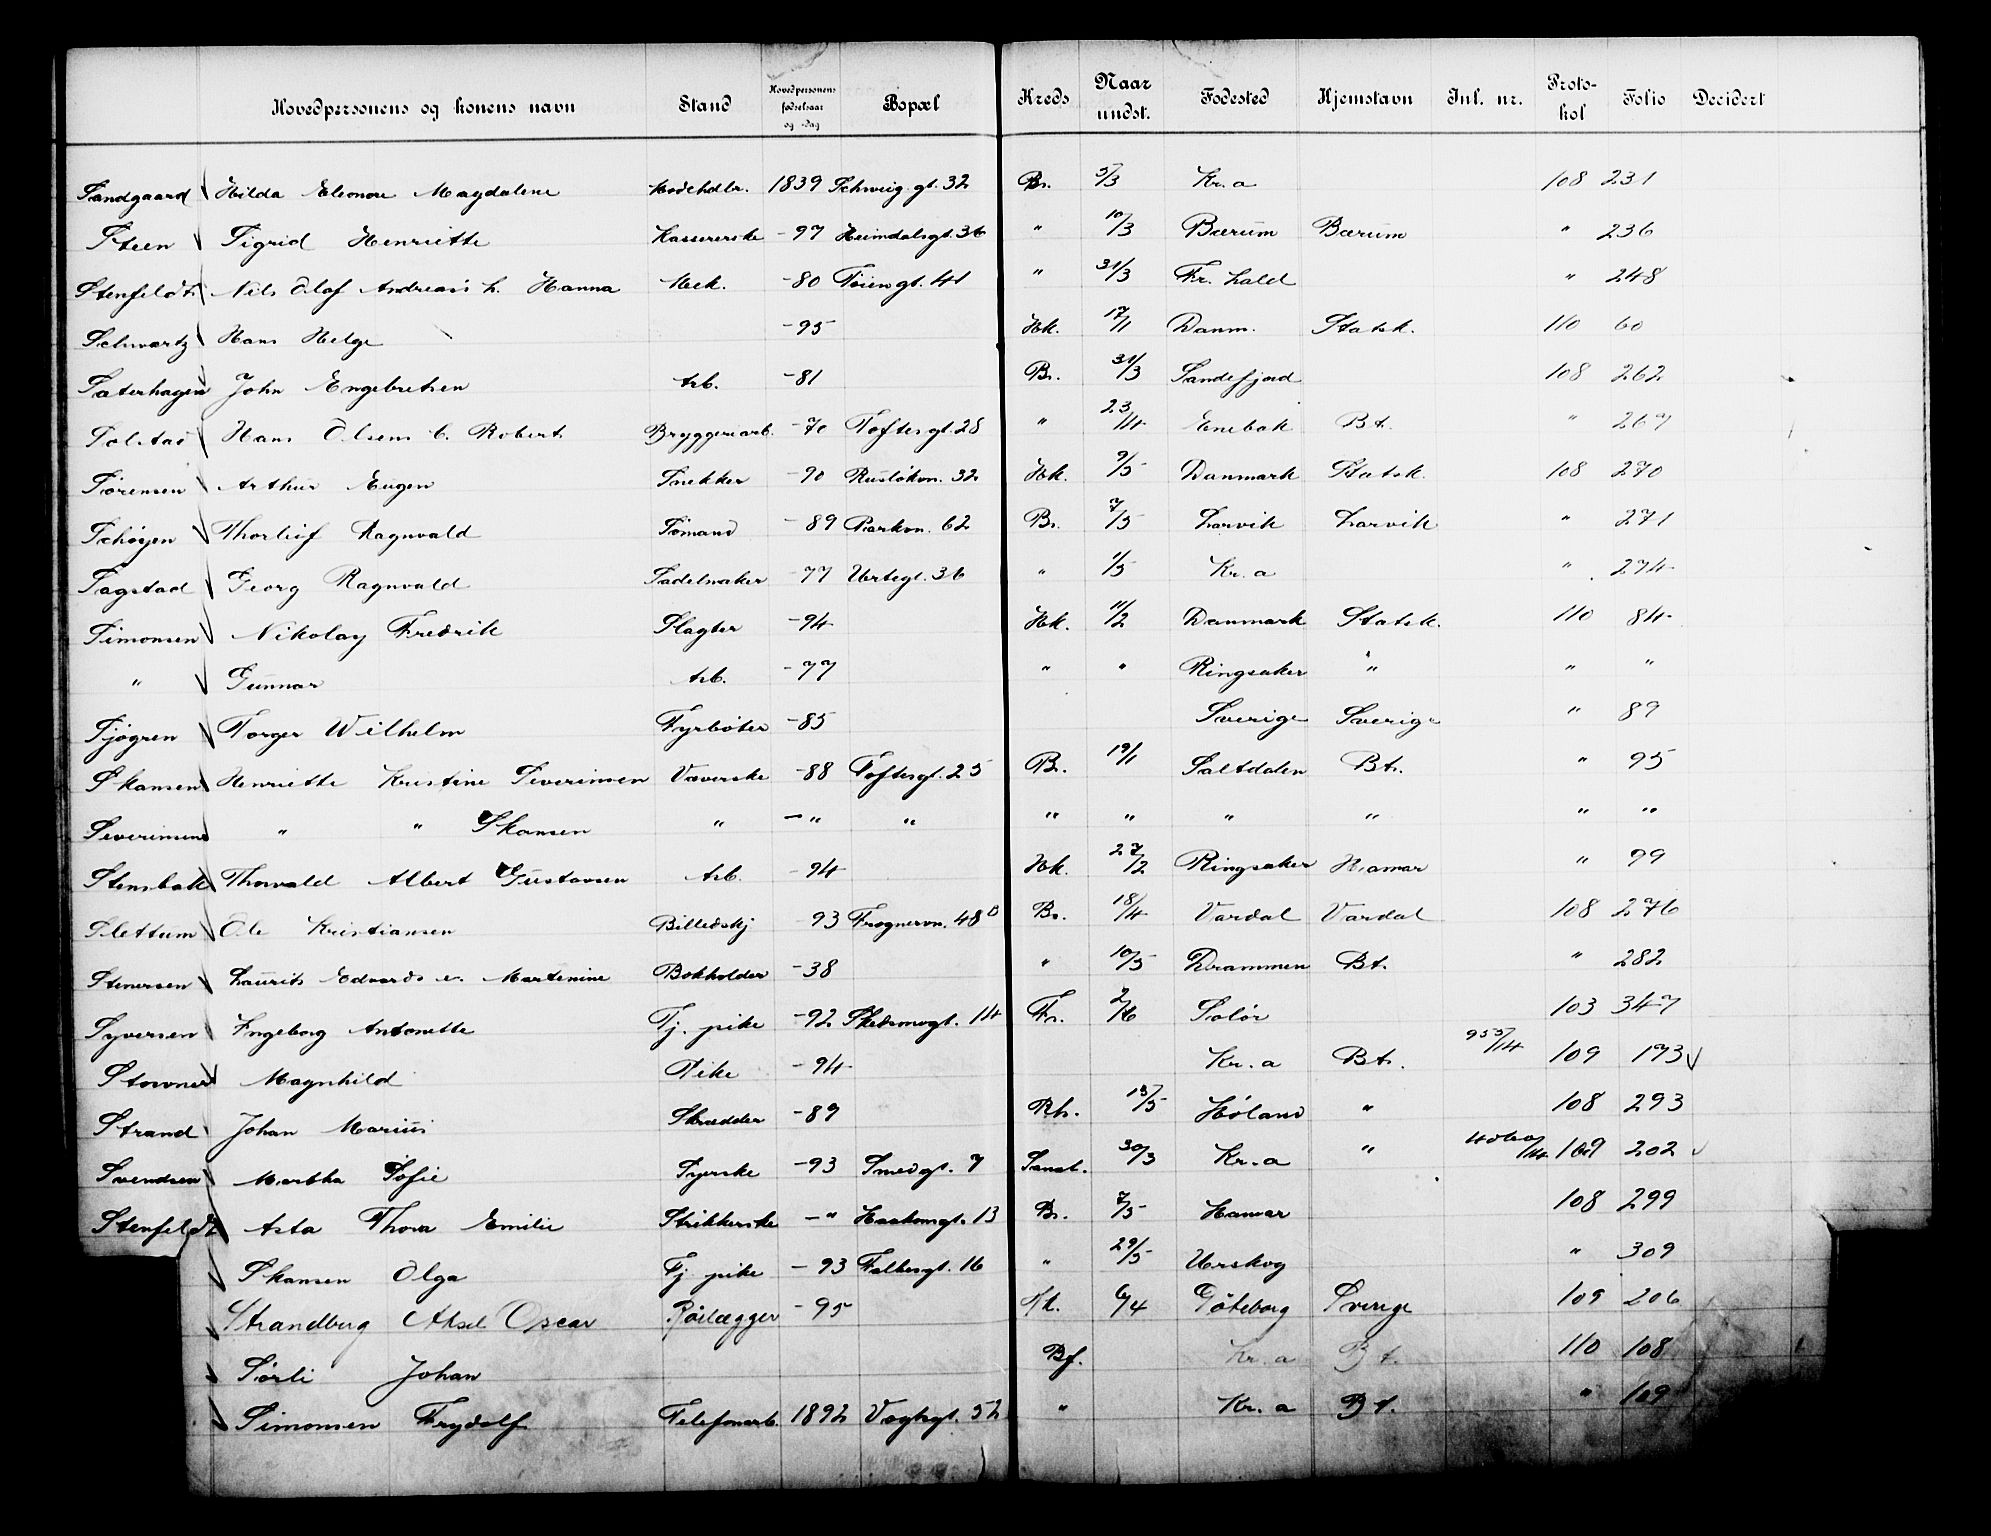 Hovedpersonens og konens navn Stand Hovedpersonens fødselsaar og -dag Bopæl Kreds Naar undst. Fødested Hjemstavn Inl. nr. Protokol Folio Decidert
Sandgaard Hilda Eleonore Magdalene 1839 Schweig.gt. 32 Br. 5/3 Kr.a 108 231
Steen Sigrid Henriette Kassererske -97 Heimdalsgt. 36 " 10/3 Bærum Bærum " 236
Stenfeldt Nils Olaf Andreas h. Hanna Mek. -80 Tøiengt. 41 " 31/3 Fr. hald " 248
Schwartz Hans Helge -95 Hk. 17/1 Danm. Statsk. 110 60
Sæterhagen John Engebretsen Arb. -81 Br. 31/3 Sandefjord 108 262
Solstad Hans Olsen Robert Bryggeriarb. -70 Toftesgt. 28 " 23/4 Enebak Bt. " 267
Sørensen Arthur Eugen Snekker -90 Rusløkvn. 32 Hk. 9/5 Danmark Statsk. 108 270
Schøyen Thorleif Ragnvald Sømand -89 Parkvn. 62 Br. 7/5 Larvik Larvik " 271
Sagstad Georg Ragnvald Sadelmaker -77 Urtegt. 36 " 1/5 Kr.a " 274
Simonsen Nikolay Fredrik Slagter -94 Hk. 11/2 Danmark Statsk. 110 84
" Gunnar Arb. -77 " " Ringsaker " " "
Sjøgren Torger Wilhelm Fyrbøter -85 Sverige Sverige " 89
Skansen Henriette Kristine Severinsen Væverske -88 Toftesgt. 25 Br. 19/1 Saltdalen Bt. " 95
Severinsen " " Skansen " -" " " " " " " "
Stensbak Thorvald Albert Gustavsen Arb. -94 Hk. 27/2 Ringsaker Hamar " 99
Slettum Ole Kristiansen Billedskj -93 Frognervn. 48 B Br. 18/4 Vardal Vardal 108 276
Stenersen Laurits Edvards e. Martenine Bokholder -38 " 10/5 Drammen Bt. " 282
Syversen Ingeborg Antonette Tj. pike -92 Skedsmogt. 14 Fr. 2/6 Solør 103 347
Stovner Magnhild Pike -94 Kr.a Bt. 955/14 109 193
Strand Johan Marius Skrædder -89 Rh. 13/5 Høland " 108 293
Svendsen Martha Sofie Syerske -93 Smedgt. 7 Sanst. 30/3 Kr.a " 4060/14 109 202
Stenfeldt Asta Thora Emilie Strikkerske -" Haakonsgt. 13 Br. 7/5 Hamar 108 299
Skansen Olga Tj. pike -93 Falbesgt. 16 " 29/5 Urskog " 309
Strandberg Aksel Oscar Rørlægger -95 Hk. 6/4 Göteborg Sverige 109 206
Sørli Johan Bf. Kr.a Bt. 110 108
Simonsen Frydolf Telefonarb. 1892 Vogtsgt. 52 " Kr.a Bt. " 109